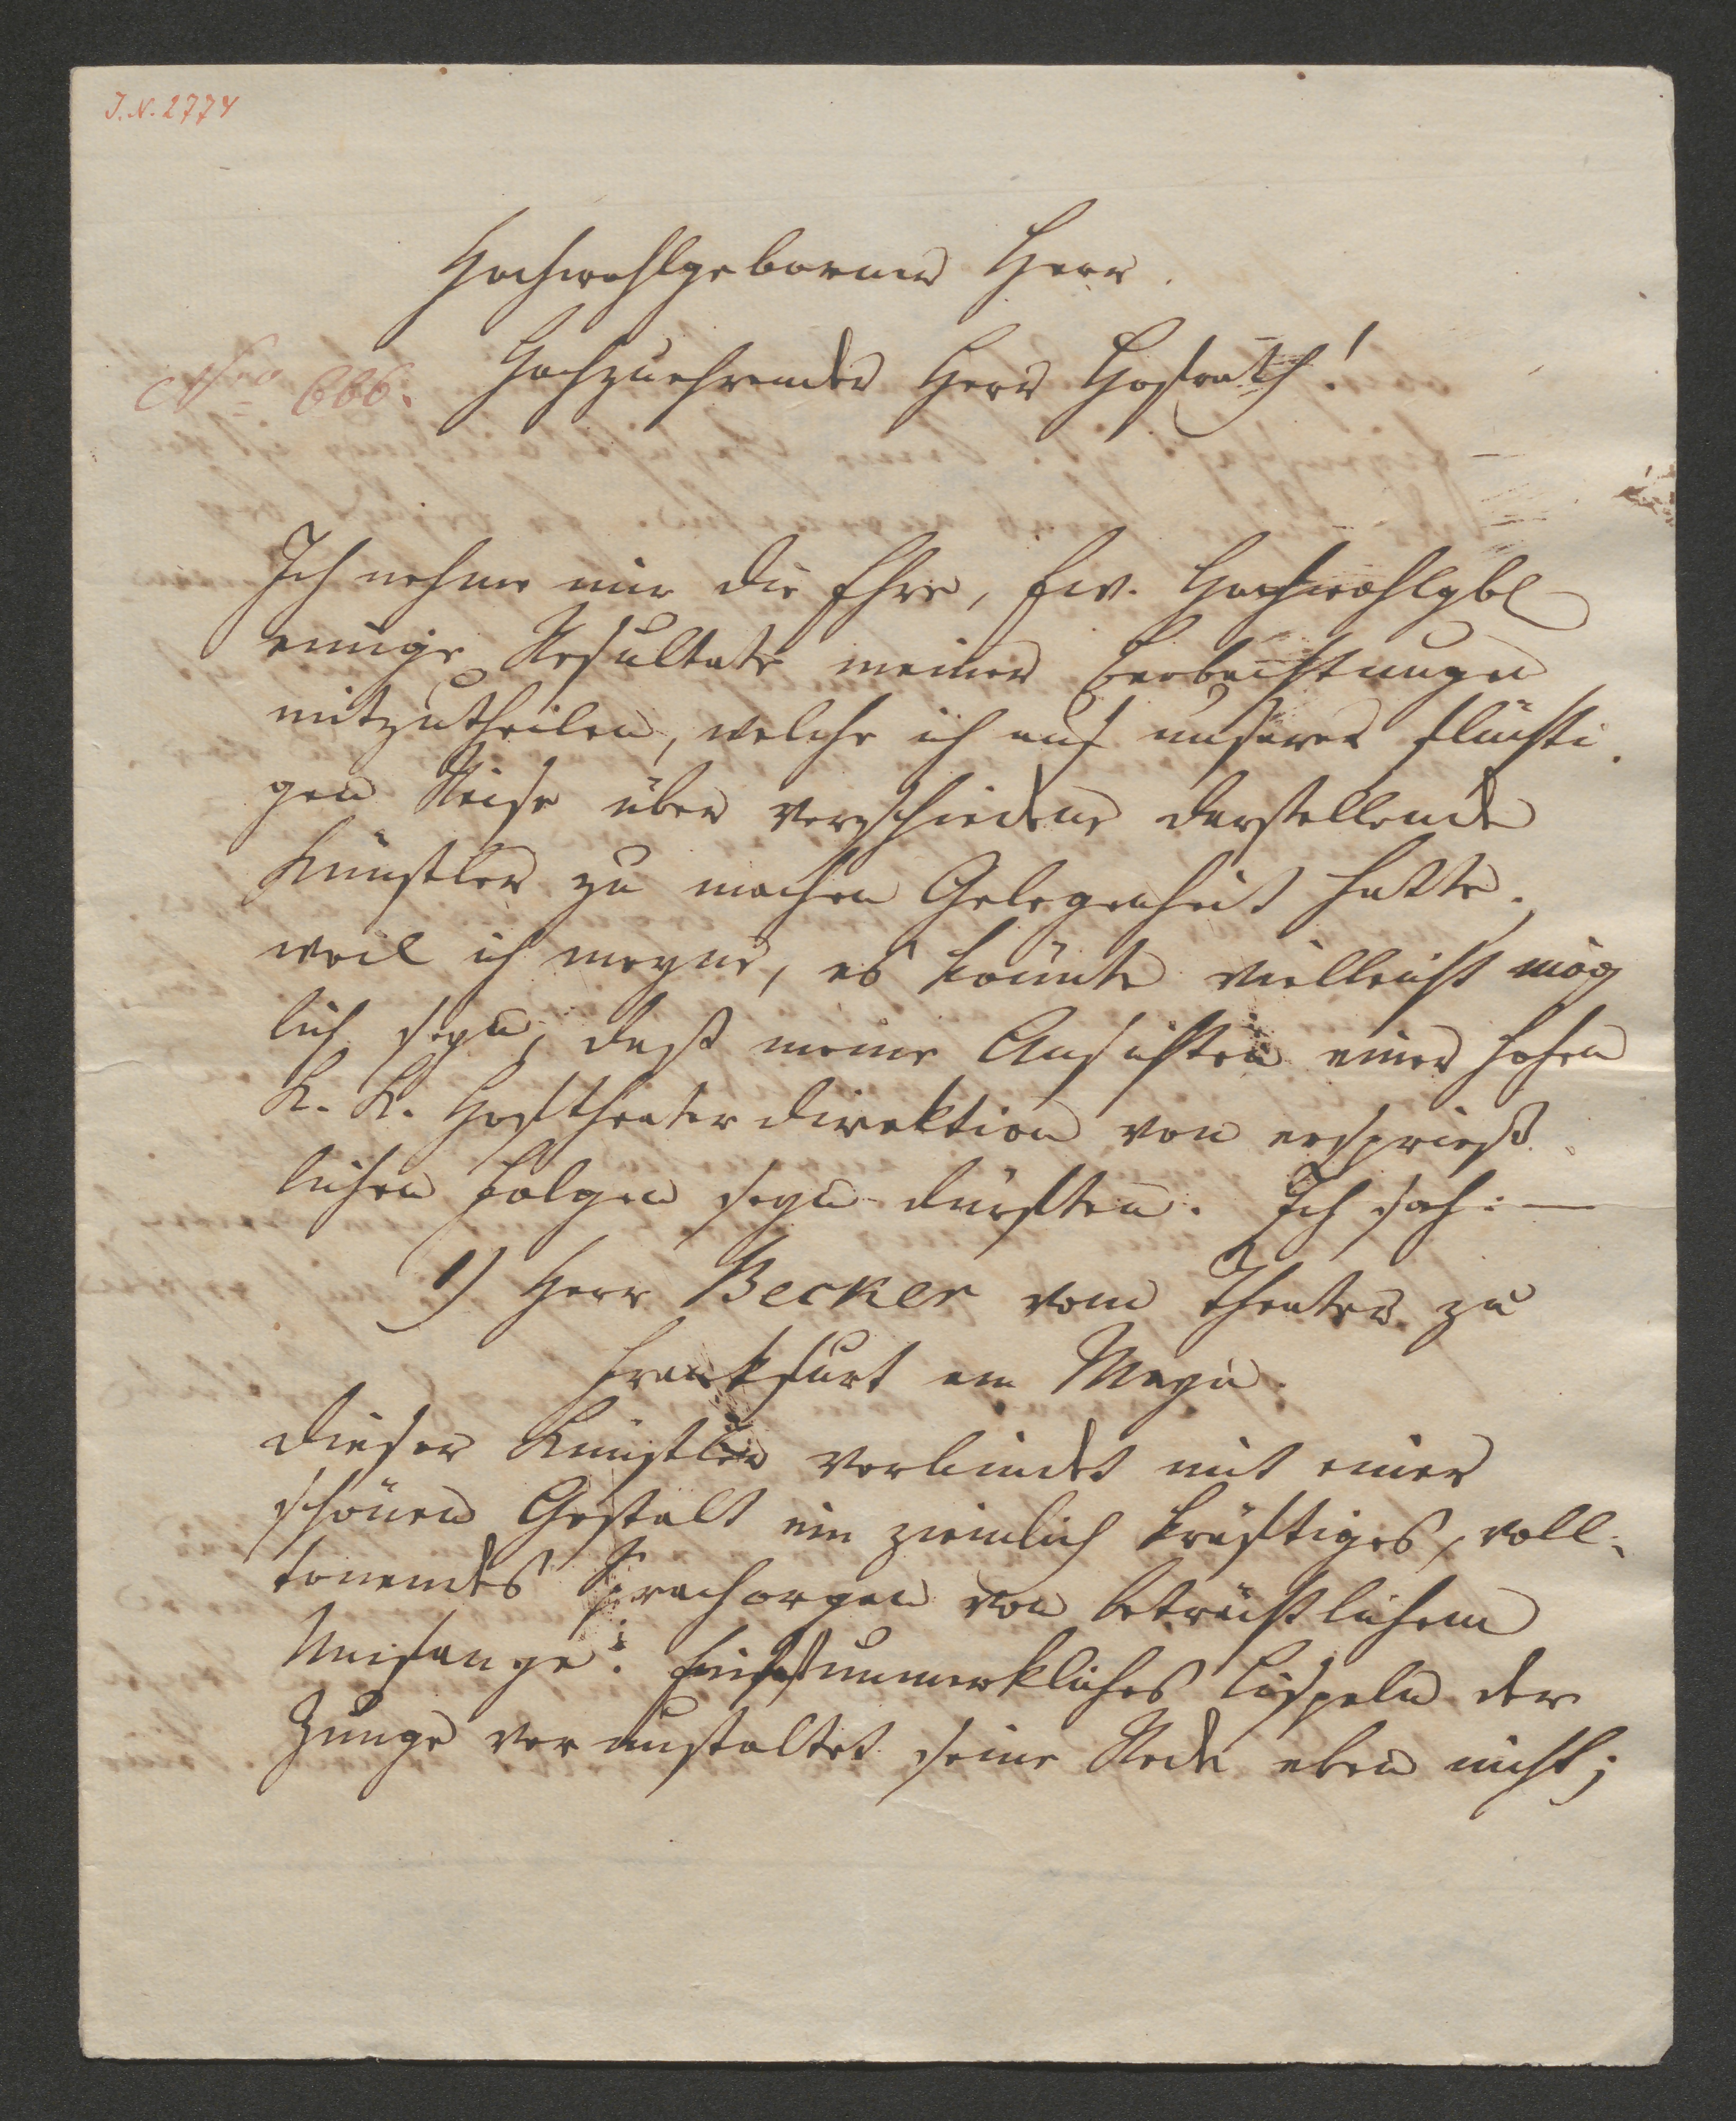 J. N. 2774
Hochwohlgeborner Herr
Nro 666.
Hochzuehrender Herr Hofrath!
Ich nehme mir die Ehre, Ew. Hochwohlgbl
einige Resultate meiner Beobachtungen
mitzutheilen, welche ich auf unserer flüchti
gen Reise über verschiedene darstellende
Künstler zu machen Gelegenheit hatte,
weil ich meyne, es könnte vielleicht mög
lich seyn, daß meine Ansichten einer hohen
K. K. Hoftheaterdirektion von ersprieß
lichen Folgen seyn dürften. Ich sah: —
1) Herr Becker vom Theater zu
Frankfurt am Mayn.
Dieser Künstler verbindet mit einer
schönen Gestalt ein ziemlich kräftiges, voll-
tonendes Sprachorgan von beträchtlichem
Umfange. Ein fast unmerkliches Lispeln der
Zunge verunstaltet seine Rede eben nicht;